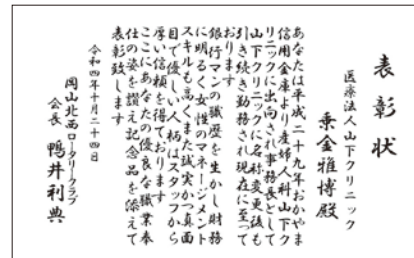 表彰状
医療法人山下クリニック
乗金雅博殿
あなたは平成二十九年おかやま
信用金庫より産婦人科山下ク
リニックに出向され事務長として
山下クリニックに名称変更後も
引き続き勤務され現在に至って
おります
銀行マンの職歴を生かし財務
に明るく女性のマネージメント
スキルも高くまた誠実かつ真面
目で優しい人柄はスタッフから
厚い信頼を得ております
ここにあなたの優良な職業奉
仕の姿を讃え記念品を添えて
表彰致します
令和四年十月二十四日
岡山北西ロータリークラブ
会長 鴨井利典